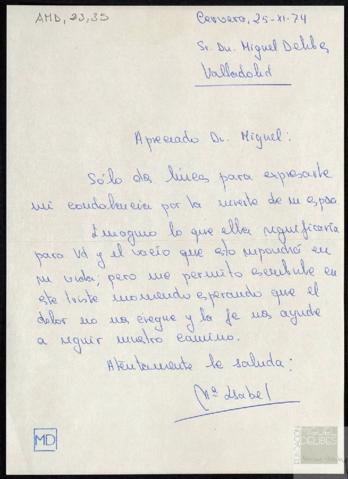 AMD, 23, 35
Cervera, 25-XI-74
Sr. Dn. Miguel Delibes
Valladolid
Apreciado Dn. Miguel:
Sólo dos líneas para expresarle
mi condolencia por la muerte de su esposa.
Imagino lo que ella significaría
para Vd y el vacío que esto supondrá en
su vida, pero me permito escribirle en
este triste momento esperando que el
dolor no nos ciegue y la fe nos ayude
a seguir nuestro camino.
Atentamente le saluda:
Mª Isabel
MD
FUNDACIÓN
DELIBES